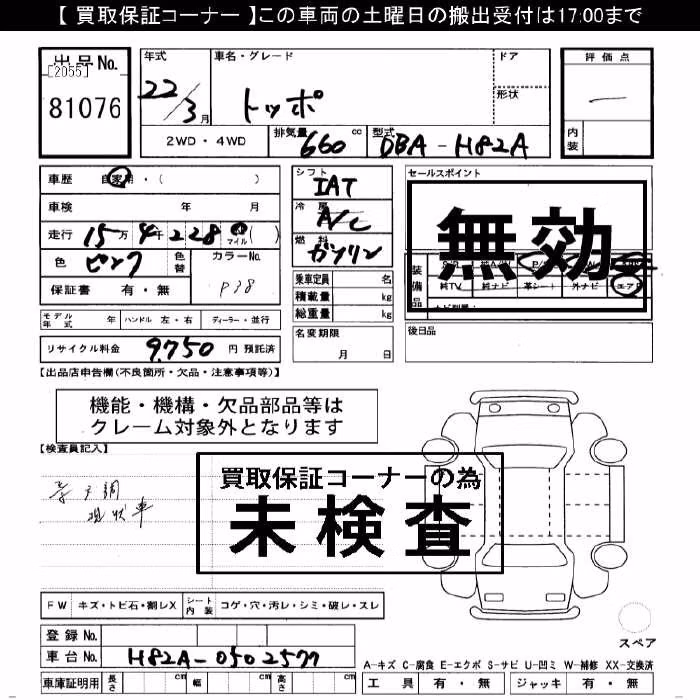 【 買取保証コーナー 】この車両の土曜日の搬出受付は17:00まで
出品No.
[2055]
81076
年式
22/3月
車名・グレード
トッポ
ドア
形状
評価点
内装
2WD・4WD
排気量 660 cc
型式 DBA-H82A
車歴 自家用・( )
車検 年 月
走行 15万4千228 マイル ( )
色 ピンク 色替
カラーNo. P38
保証書 有・無
シフト IAT
冷房 A/C
燃料 ガソリン
乗車定員 名
積載量 kg
総重量 kg
セールスポイント
無効
装備品
純TV 純ナビ 革シート 外ナビ エアB
モデル年式 年 ハンドル 左・右 ディーラー・並行
名変期限 月 日
後日品
リサイクル料金 9,750 円 預託済
【出品店申告欄(不良箇所・欠品・注意事項等)】
機能・機構・欠品部品等は
クレーム対象外となります
【検査員記入】
現状車
買取保証コーナーの為
未検査
FW キズ・トビ石・割レX シート内装 コゲ・穴・汚レ・シミ・破レ・スレ
スペア
登録No.
車台No. H82A-0502577
A-キズ C-腐食 E-エクボ S-サビ U-凹ミ W-補修 XX-交換済
車庫証明用 長さ cm 幅 cm 高さ cm
工具 有・無 ジャッキ 有・無